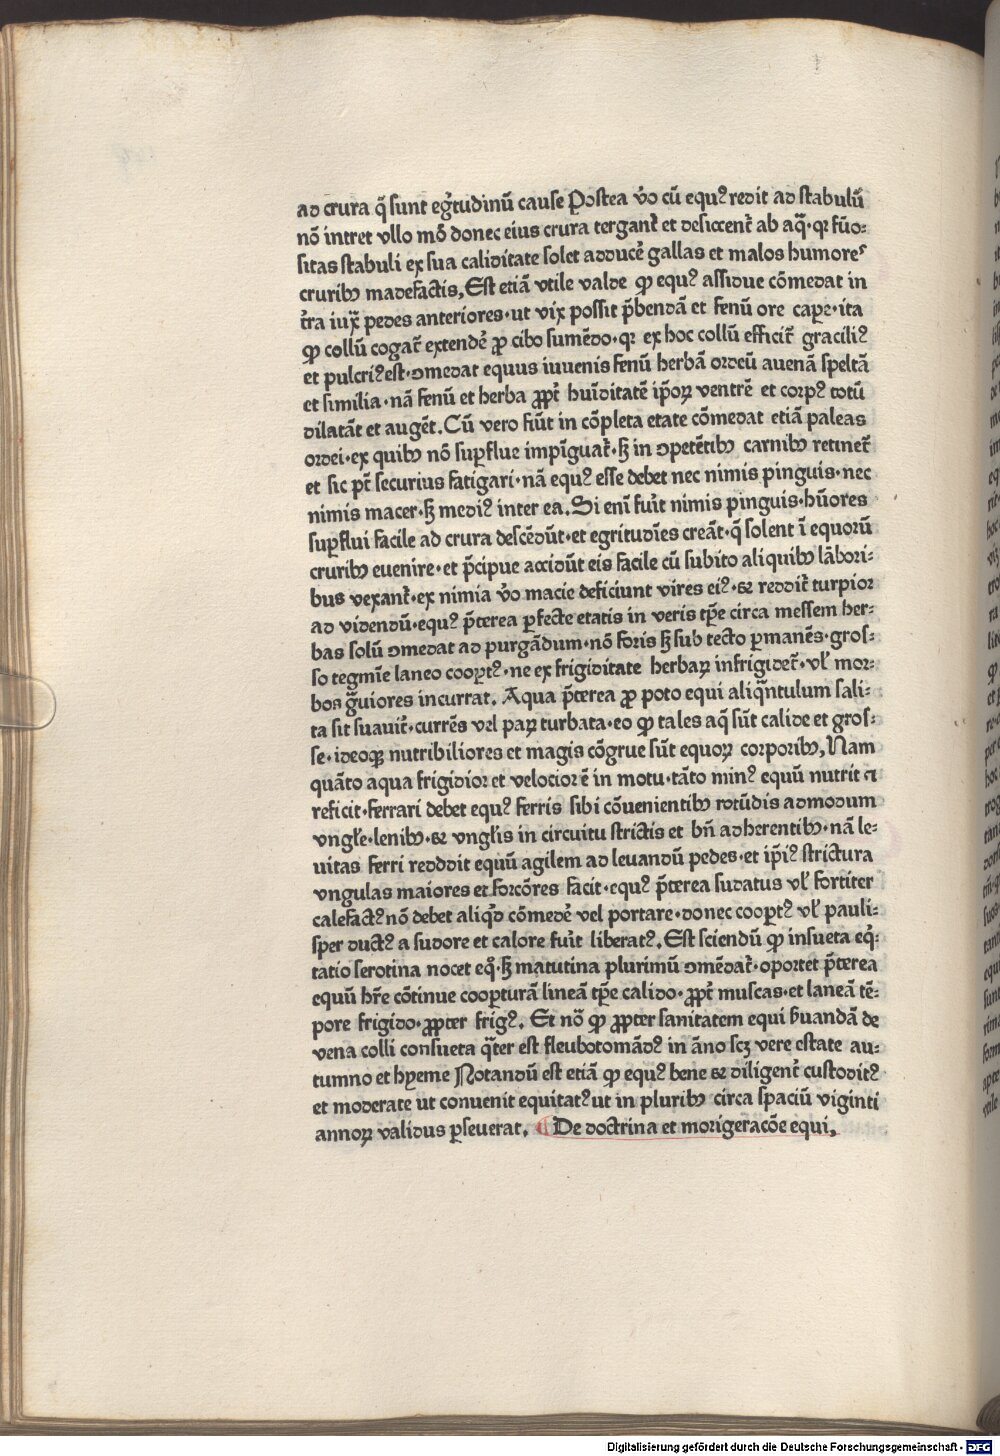 ad crura q̄ sunt eg̾tudinū cause Postea v̾o cū equꝰ redit ad stabulū
nō intret vllo mō donec eius crura tergant̾ et desiccent̾ ab aq̄·qꝛ fūo⸗
sitas stabuli ex sua caliditate solet adduce̾ gallas et malos humores
crurib⁹ madefactis, Est etiā vtile valde ꝙ equꝰ assidue cōmedat in
t̾ra iux̄ pedes anteriores·ut vix possit p̄bendā et fenū ore cape̾·ita
ꝙ collū cogat̾ extende̾ ꝓ cibo sumēdo·qꝛ ex hoc collū efficit̾ graciliꝰ
et pulcriꝰ est·ↄmedat equus iuuenis fenū herbā ordeū auenā speltā
et similia·nā fenū et herba ꝓpt̾ huīditatē ip̄oꝝ ventrē et corpꝰ totū
dilatāt et augēt. Cū vero fiūt in cōpleta etate cōmedat etiā paleas
ordei·ex quib⁹ nō suꝑflue imp̄iguat̾·ꝫ in ↄpetētib⁹ carnib⁹ retinet̾
et sic pt̄ securius fatigari·nā equꝰ esse debet nec nimis pinguis·nec
nimis macer·ꝫ mediꝰ inter ea. Si eni̅ fu̾it nimis pinguis·hūores
suꝑflui facile ad crura descēdūt·et egritudīes creāt·q̄ solent ī equorū
crurib⁹ euenire·et p̄cipue accidūt eis facile cū subito aliquib⁹ lābori⸗
bus vexant̾·ex nimia v̾o macie deficiunt vires eiꝰ·⁊ reddit̾ turpior
ad videndū·equꝰ p̄terea ꝑfecte etatis in veris tp̄e circa messem her⸗
bas solū ↄmedat ad purgādum·nō foris ꝫ sub tecto ꝑmanēs·gros⸗
so tegmīe laneo cooꝑtꝰ·ne ex frigiditate herbaꝝ infrigidet̾·vl̾ mor⸗
bos g̾uiores incurrat. Aqua p̄terea ꝓ poto equi aliq̄ntulum sali⸗
ta sit suauit̾·currēs vel paꝝ turbata·eo ꝙ tales aq̄ sūt calide et gros⸗
se·ideoqꝫ nutribiliores et magis cōgrue sūt equoꝝ corporib⁹, Nam
quāto aqua frigidior et velocior ē in motu·tāto minꝰ equū nutrit ⁊
reficit·ferrari debet equꝰ ferris sibi cōuenientib⁹ rotūdis admodum
vngl̾e·lenib⁹·⁊ vngl̾is in circuitu strictis et bn̄ adherentib⁹·nā le⸗
uitas ferri redddit equū agilem ad leuandū pedes·et ip̄iꝰ strictura
vngulas maiores et forcōres facit·equꝰ p̄terea sudatus vl̾ fortiter
calefactꝰ nō debet aliq̇d cōmede̾ vel portare·donec cooꝑtꝰ vl̾ pauli⸗
sper ductꝰ a sudore et calore fu̾it liberatꝰ. Est sciendū ꝙ insueta eq̇⸗
tatio serotina nocet eq̊·ꝫ matutina plurimū ↄmēdat̾·oportet p̄terea
equū hr̄e cōtinue cooꝑturā lineā tp̄e calido·ꝓpt̾ muscas·et laneā tē⸗
pore frigido·ꝓpter frigꝰ. Et nō ꝙ ꝓpter sanitatem equi ẜuandā de
vena colli consueta q̄ter est fleubotomādꝰ in āno scꝫ vere estate au⸗
tumno et hyeme Notandū est etiā ꝙ equꝰ bene ⁊ diligent̾ custoditꝰ
et moderate ut conuenit equitatꝰ ut in plurib⁹ circa spaciū viginti
annoꝝ validus ꝑseuerat. ⸿ De doctrina et morigeracōe equi.
Digitalisierung gefördert durch die Deutsche Forschungsgemeinschaft - DFG